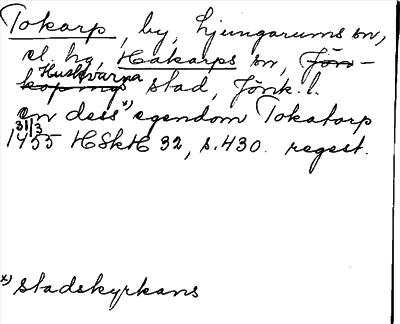 Tokarp, by, Ljungarums sn,
el. hg, Hakarps sn, Jön-
köpings Huskvarna stad, Jönk. l.
en dess x) egendom Tokatorp
31/3
1455 HSkH 32, s. 430. regest.
x) stadskyrkans